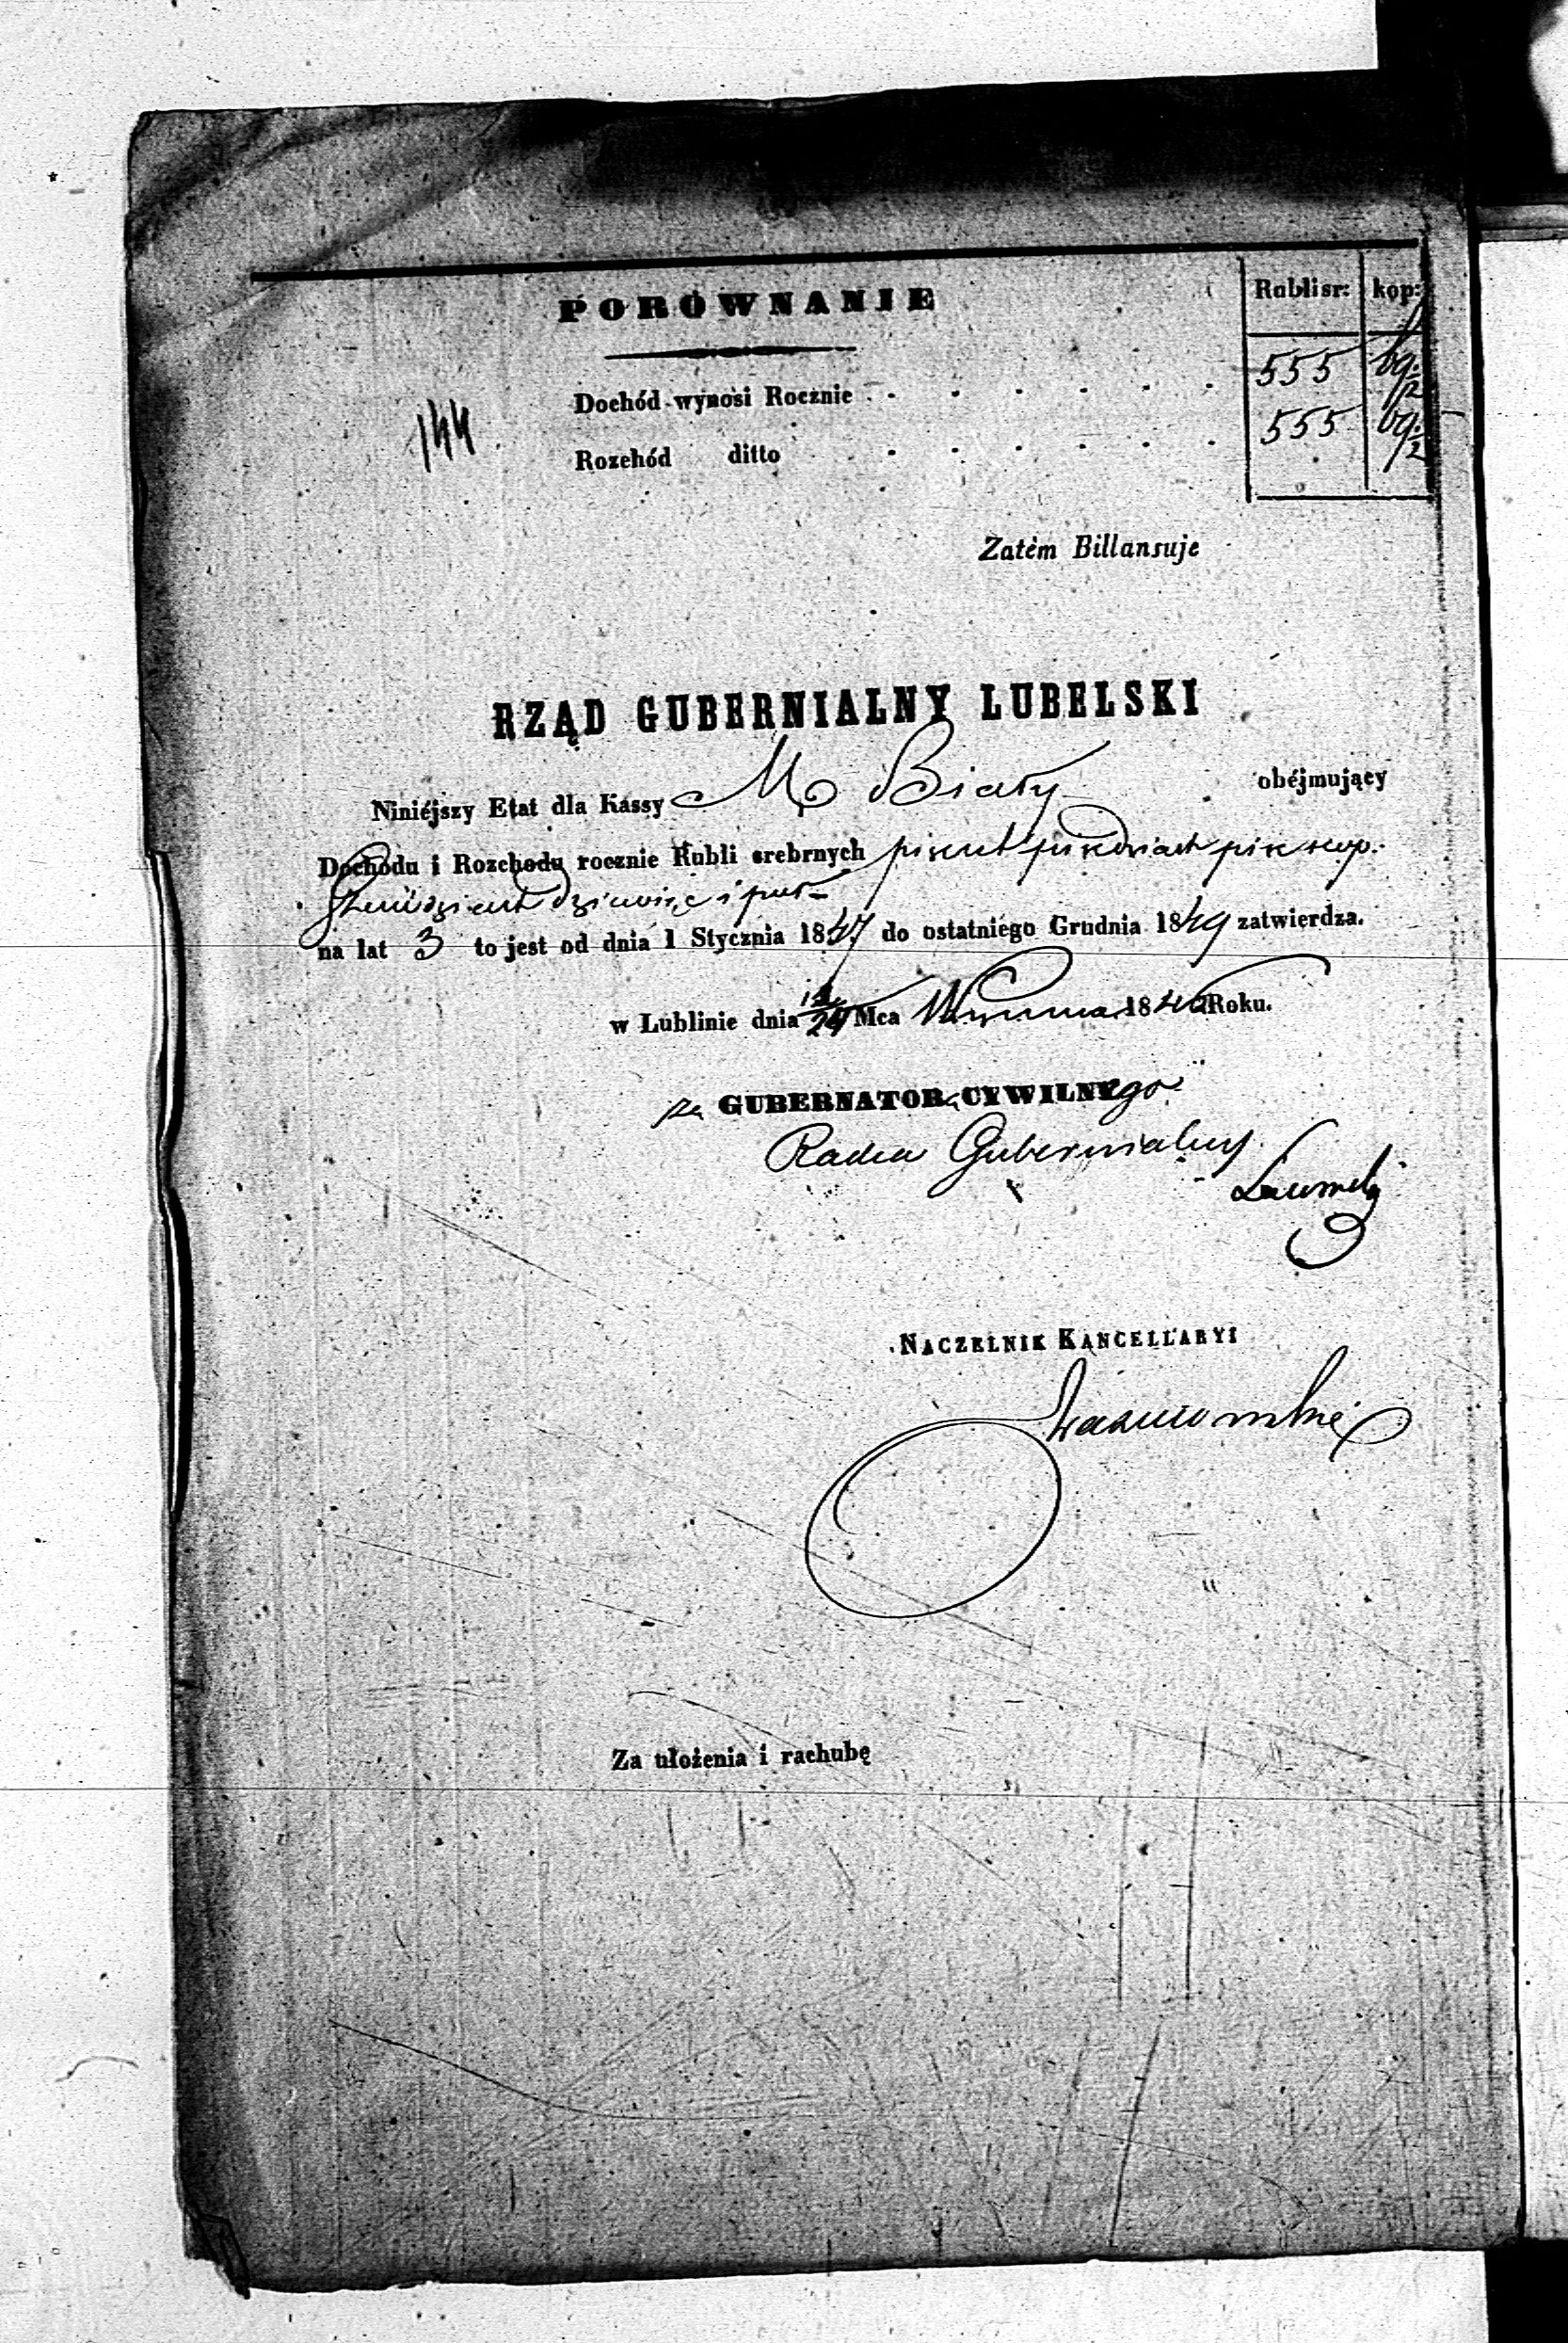 PORÓWNANIE
Rubli sr: kop:
Dochód wynosi Rocznie . . . . . . 555 69 1/2
144
Rozchód ditto . . . . . . 555 69 1/2
Zatém Billansuje
RZĄD GUBERNIALNY LUBELSKI
Niniéjszy Etat dla Kassy M Biały obéjmujący
Dochodu i Rozchodu rocznie Rubli srebrnych pięćset pięćdziesiąt pięć kop.
sześćdziesiąt dziewięć i pół
na lat 3 to jest od dnia 1 Stycznia 1847 do ostatniégo Grudnia 1849 zatwierdza.
w Lublinie dnia 12/24 Mca Września 1846 Roku.
za GUBERNATORA CYWILNEgo
Radca Gubernialny
NACZELNIK KANCELLARYI
Za ułożenia i rachubę